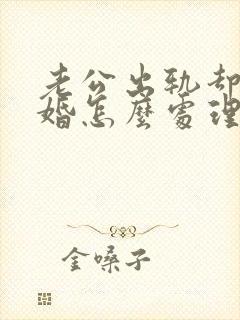 老公出轨却
婚怎麼處理
金嗓子